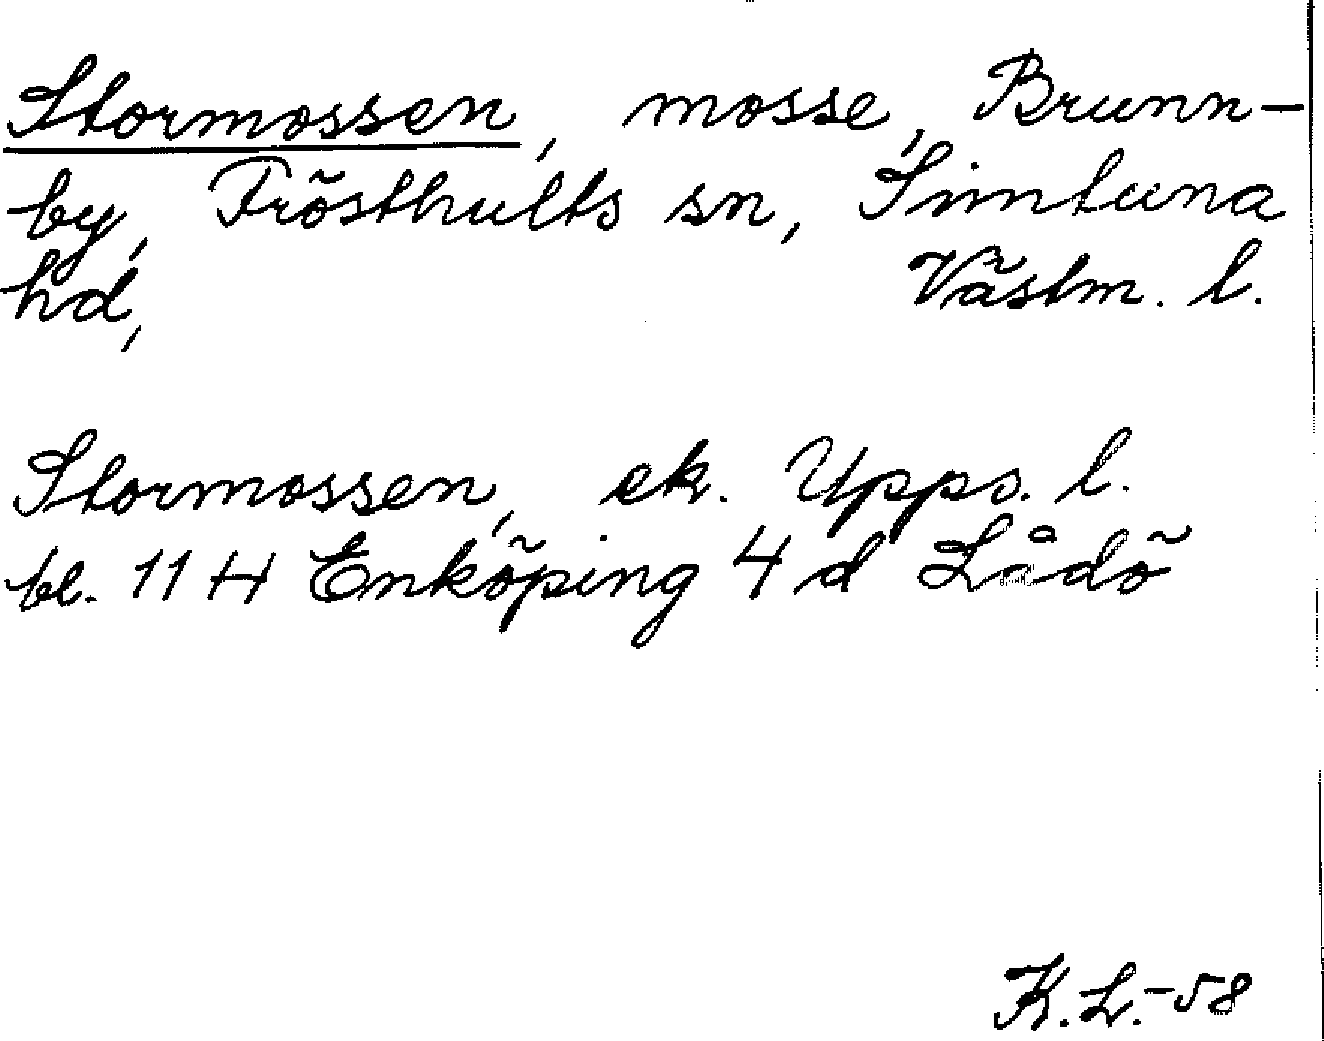 Stormossen, mosse, Brunn-
by, Frösthults sn, Simtuna
hd, Västm. l.
Stormossen, ek. Upps. l.
bl. 11 H Enköping 4 d Lådö
K.L.-58